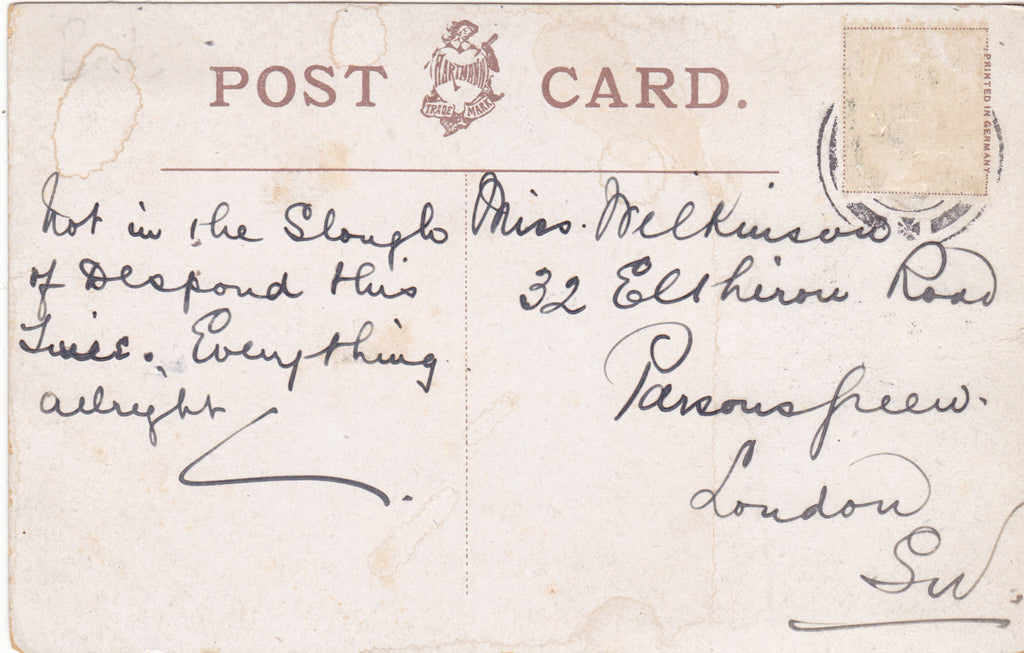 POST CARD.
HARTMANN
TRADE MARK
PRINTED IN GERMANY
Not in the Slough
of Despond this
Time. Everything
allright
Miss. Wilkinson
32 Elthiron Road
Parsons green.
London
SW.